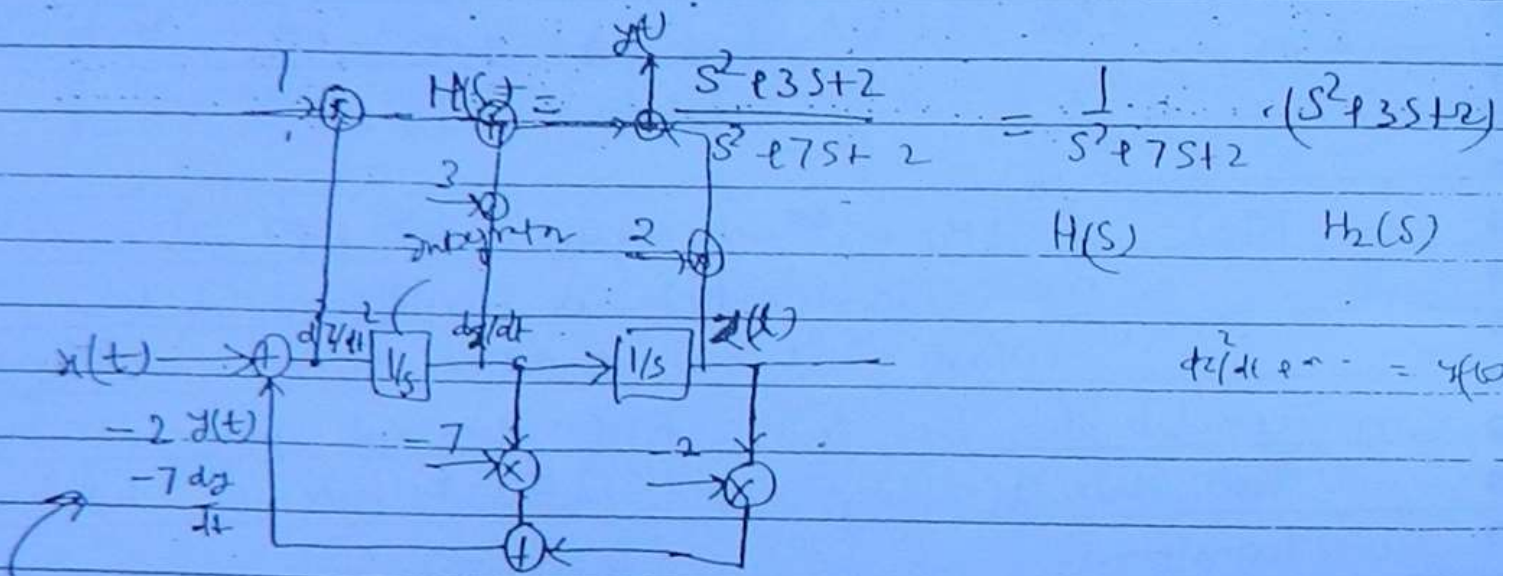 y(t)
1 H(s) = s²+3s+2 / s²+7s+2 = 1 / s²+7s+2 · (s²+3s+2)
3
integrator 2 H(s) H₂(s)
x(t) + 1/s dz/dt 1/s z(t)
-2 y(t) -7 -2
-7 dy/dt